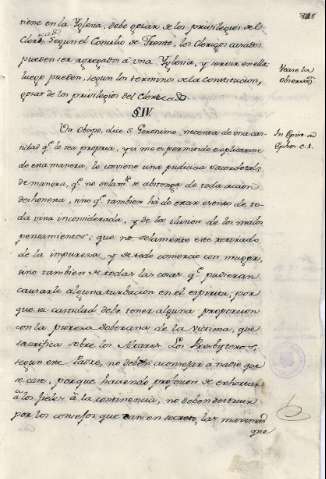 tiene en la Yglesia, debe gozar de los privilegios del
Clero. Segun el Concilio de Trento, los Clerigos casados
pueden ser agregados á una Yglesia, y
luego pueden, segun los terminos de la constitucion,
gozar de los privilegios del Clero.
§IV.
Un obispo, dice S. Geronimo, necesita de una cas-
tidad q.e le sea propria, y si me es permitido explicarme
de esta manera, le conviene una pudicicia Sacerdotal:
de manera, q.e no solam.te se abstenga de toda accion
deshonesta, sino q.e tambien ha de estar esento de to-
da vista inconsiderada, y de las ilusiones de los malos
pensamientos: que no solamente este retirado
de la impureza, y de todo comercio con mugeres,
sino tambien de todas las cosas q.e pudieran
causarle alguna turbacion en el espiritu; por
que su castidad debe tener alguna proporcion
con la pureza soberana de la victima, que
sacrifica sobre los Altares. Los Presbyteros,
segun este Padre, no deben aconsejar a nadie que
se case, porque haciendo profesion de exhortar
á los fieles á la continencia, no deben destruir
por los consejos que dan en secreto, las
que
Vease la
observacion
In Epist. ad
c. 1.